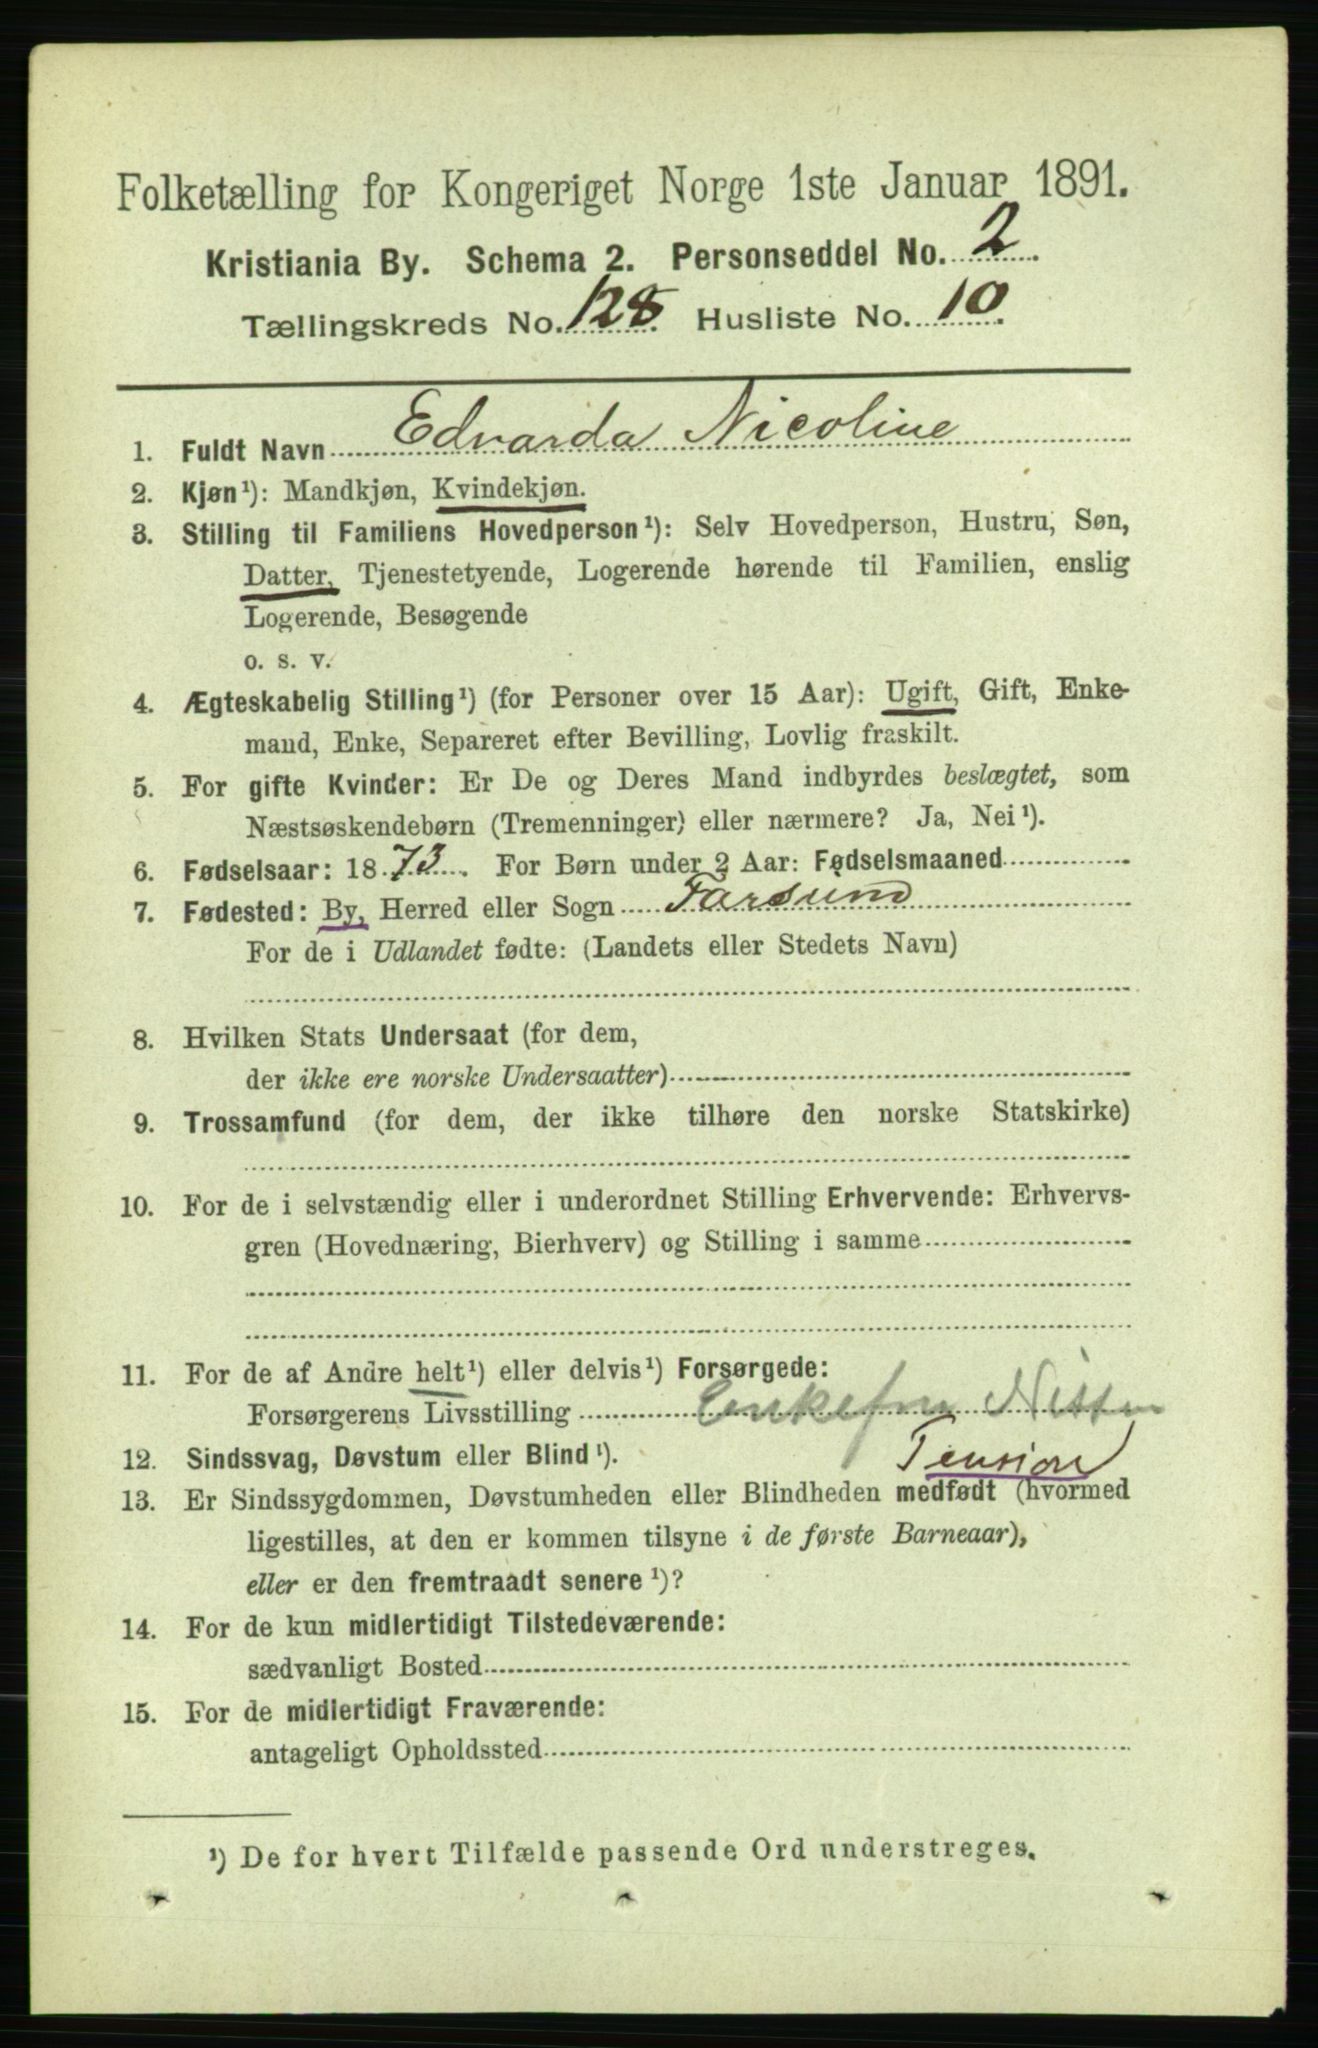 Folketælling for Kongeriget Norge 1ste Januar 1891.
Kristiania By. Schema 2. Personseddel No. 2.
Tællingskreds No. 128. Husliste No. 10.
1. Fuldt Navn Edvarda Nicoline
2. Kjøn¹): Mandkjøn, Kvindekjøn.
3. Stilling til Familiens Hovedperson¹): Selv Hovedperson, Hustru, Søn,
Datter, Tjenestetyende, Logerende hørende til Familien, enslig
Logerende, Besøgende
o. s. v.
4. Ægteskabelig Stilling¹) (for Personer over 15 Aar): Ugift, Gift, Enke-
mand, Enke, Separeret efter Bevilling, Lovlig fraskilt.
5. For gifte Kvinder: Er De og Deres Mand indbyrdes beslægtet, som
Næstsøskendebørn (Tremenninger) eller nærmere? Ja, Nei¹).
6. Fødselsaar: 1873. For Børn under 2 Aar: Fødselsmaaned
7. Fødested: By, Herred eller Sogn Farsund
For de i Udlandet fødte: (Landets eller Stedets Navn)
8. Hvilken Stats Undersaat (for dem,
der ikke ere norske Undersaatter)
9. Trossamfund (for dem, der ikke tilhøre den norske Statskirke)
10. For de i selvstændig eller i underordnet Stilling Erhvervende: Erhvervs-
gren (Hovednæring, Bierhverv) og Stilling i samme
11. For de af Andre helt¹) eller delvis¹) Forsørgede:
Forsørgerens Livsstilling Enkefru Nissen
Pension
12. Sindssvag, Døvstum eller Blind¹).
13. Er Sindssygdommen, Døvstumheden eller Blindheden medfødt (hvormed
ligestilles, at den er kommen tilsyne i de første Barneaar),
eller er den fremtraadt senere¹)?
14. For de kun midlertidigt Tilstedeværende:
sædvanligt Bosted
15. For de midlertidigt Fraværende:
antageligt Opholdssted
¹) De for hvert Tilfælde passende Ord understreges.